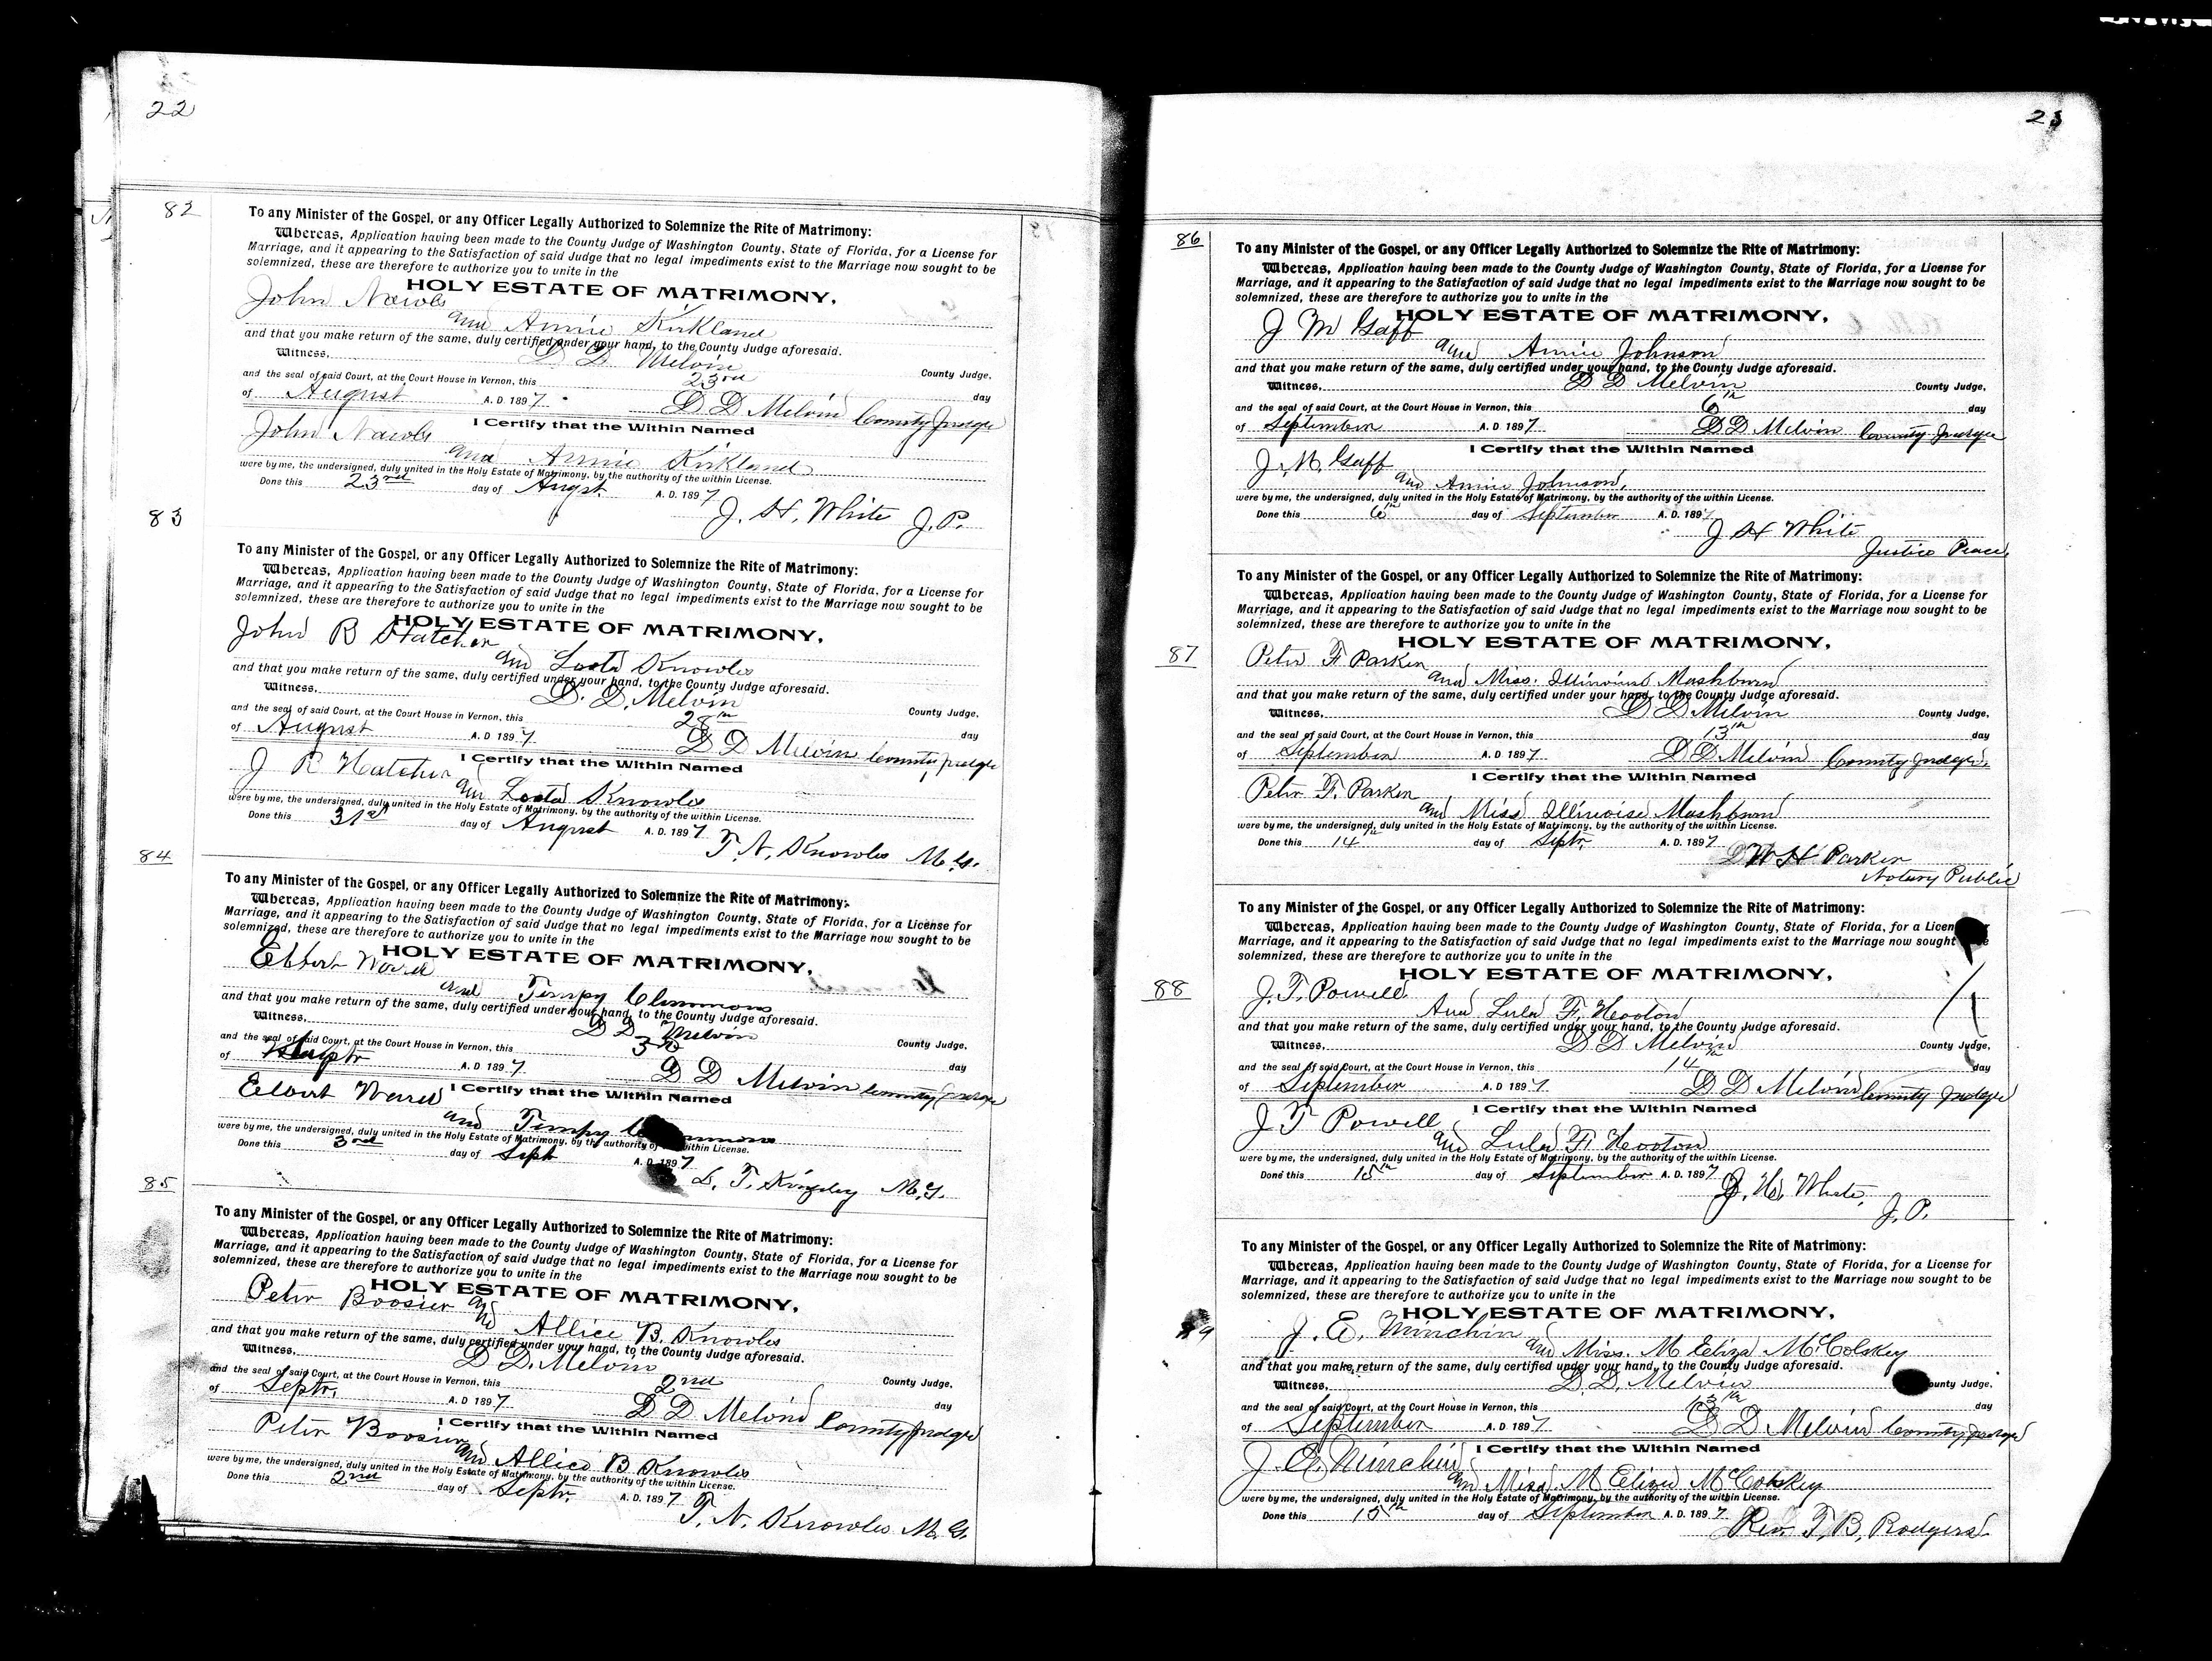 22
82
To any Minister of the Gospel, or any Officer Legally Authorized to Solemnize the Rite of Matrimony:
Whereas, Application having been made to the County Judge of Washington County, State of Florida, for a License for
Marriage, and it appearing to the Satisfaction of said Judge that no legal impediments exist to the Marriage now sought to be
solemnized, these are therefore to authorize you to unite in the
HOLY ESTATE OF MATRIMONY,
John Nawls
and Annie Kirkland
and that you make return of the same, duly certified under your hand, to the County Judge aforesaid.
Witness, D D Melvin County Judge,
and the seal of said Court, at the Court House in Vernon, this 23rd day
of August A. D. 1897 D D Melvin County Judge
I Certify that the Within Named
John Nawls
and Annie Kirkland
were by me, the undersigned, duly united in the Holy Estate of Matrimony, by the authority of the within License.
Done this 23rd day of Augst. A. D. 1897
J. H. White J. P.
83
To any Minister of the Gospel, or any Officer Legally Authorized to Solemnize the Rite of Matrimony:
Whereas, Application having been made to the County Judge of Washington County, State of Florida, for a License for
Marriage, and it appearing to the Satisfaction of said Judge that no legal impediments exist to the Marriage now sought to be
solemnized, these are therefore to authorize you to unite in the
HOLY ESTATE OF MATRIMONY,
John R Hatcher
and Loota Knowles
and that you make return of the same, duly certified under your hand, to the County Judge aforesaid.
Witness, D. D. Melvin County Judge,
and the seal of said Court, at the Court House in Vernon, this 28th day
of August A. D. 1897 D D Melvin County Judge
I Certify that the Within Named
J R Hatcher
and Loota Knowles
were by me, the undersigned, duly united in the Holy Estate of Matrimony, by the authority of the within License.
Done this 31st day of August A. D. 1897
T. N. Knowles M. G.
84
To any Minister of the Gospel, or any Officer Legally Authorized to Solemnize the Rite of Matrimony:
Whereas, Application having been made to the County Judge of Washington County, State of Florida, for a License for
Marriage, and it appearing to the Satisfaction of said Judge that no legal impediments exist to the Marriage now sought to be
solemnized, these are therefore to authorize you to unite in the
HOLY ESTATE OF MATRIMONY,
Elbert Ward
and Timpy Clemmons
and that you make return of the same, duly certified under your hand, to the County Judge aforesaid.
Witness, D D Melvin County Judge,
and the seal of said Court, at the Court House in Vernon, this 3rd day
of Septr A. D. 1897 D D Melvin County Judge
I Certify that the Within Named
Elbert Ward
and Timpy
were by me, the undersigned, duly united in the Holy Estate of Matrimony, by the authority of within License.
Done this 3rd day of Sept A. D. 1897
L. T. Kingsley M. G.
85
To any Minister of the Gospel, or any Officer Legally Authorized to Solemnize the Rite of Matrimony:
Whereas, Application having been made to the County Judge of Washington County, State of Florida, for a License for
Marriage, and it appearing to the Satisfaction of said Judge that no legal impediments exist to the Marriage now sought to be
solemnized, these are therefore to authorize you to unite in the
HOLY ESTATE OF MATRIMONY,
Peter Boosier and
Allice B. Knowles
and that you make return of the same, duly certified under your hand, to the County Judge aforesaid.
Witness, D D. Melvin County Judge,
and the seal of said Court, at the Court House in Vernon, this 2nd day
of Septr. A. D. 1897 D D Melvin County Judge
I Certify that the Within Named
Peter Boosier
and Allice B Knowles
were by me, the undersigned, duly united in the Holy Estate of Matrimony, by the authority of the within License.
Done this 2nd day of Septr. A. D. 1897
T. N. Knowles M. G.
23
86
To any Minister of the Gospel, or any Officer Legally Authorized to Solemnize the Rite of Matrimony:
Whereas, Application having been made to the County Judge of Washington County, State of Florida, for a License for
Marriage, and it appearing to the Satisfaction of said Judge that no legal impediments exist to the Marriage now sought to be
solemnized, these are therefore to authorize you to unite in the
HOLY ESTATE OF MATRIMONY,
J M Gaff
and Annie Johnson
and that you make return of the same, duly certified under your hand, to the County Judge aforesaid.
Witness, D D Melvin County Judge,
and the seal of said Court, at the Court House in Vernon, this 6th day
of September A. D. 1897 D D Melvin County Judge
I Certify that the Within Named
J. M. Gaff
and Annie Johnson,
were by me, the undersigned, duly united in the Holy Estate of Matrimony, by the authority of the within License.
Done this 6th day of September A. D. 1897
J H White
Justice Peace,
87
To any Minister of the Gospel, or any Officer Legally Authorized to Solemnize the Rite of Matrimony:
Whereas, Application having been made to the County Judge of Washington County, State of Florida, for a License for
Marriage, and it appearing to the Satisfaction of said Judge that no legal impediments exist to the Marriage now sought to be
solemnized, these are therefore to authorize you to unite in the
HOLY ESTATE OF MATRIMONY,
Peter F Parker
and Miss. Mashburn
and that you make return of the same, duly certified under your hand, to the County Judge aforesaid.
Witness, D D Melvin County Judge,
and the seal of said Court, at the Court House in Vernon, this 13th day
of September A. D 1897 D D Melvin County Judge,
I Certify that the Within Named
Peter F. Parker
and Miss Illinoise Mashburn
were by me, the undersigned, duly united in the Holy Estate of Matrimony, by the authority of the within License.
Done this 14th day of Septr. A. D. 1897
W H Parker
Notary Public
88
To any Minister of the Gospel, or any Officer Legally Authorized to Solemnize the Rite of Matrimony:
Whereas, Application having been made to the County Judge of Washington County, State of Florida, for a Licen
Marriage, and it appearing to the Satisfaction of said Judge that no legal impediments exist to the Marriage now sought
solemnized, these are therefore to authorize you to unite in the
HOLY ESTATE OF MATRIMONY,
J. T. Powell
And Lula F. Hooton
and that you make return of the same, duly certified under your hand, to the County Judge aforesaid.
Witness, D D Melvin County Judge,
and the seal of said Court, at the Court House in Vernon, this 14th day
of September A. D 1897 D D Melvin County Judge
I Certify that the Within Named
J T Powell
and Lula F. Hooton
were by me, the undersigned, duly united in the Holy Estate of Matrimony, by the authority of the within License.
Done this 15th day of September A. D. 1897
J. H. White,
J. P.
89
To any Minister of the Gospel, or any Officer Legally Authorized to Solemnize the Rite of Matrimony:
Whereas, Application having been made to the County Judge of Washington County, State of Florida, for a License for
Marriage, and it appearing to the Satisfaction of said Judge that no legal impediments exist to the Marriage now sought to be
solemnized, these are therefore to authorize you to unite in the
HOLY ESTATE OF MATRIMONY,
J. E. Minchin
and Miss. M Eliza McColskey
and that you make return of the same, duly certified under your hand, to the County Judge aforesaid.
Witness, D. D. Melvin ounty Judge,
and the seal of said Court, at the Court House in Vernon, this 13th day
of September A. D. 1897 D D Melvin County Judge
I Certify that the Within Named
J. E. Minchin
and Miss. M Eliza McColskey
were by me, the undersigned, duly united in the Holy Estate of Matrimony, by the authority of the within License.
Done this 15th day of September A. D. 1897
Rev. T. B. Rodgers